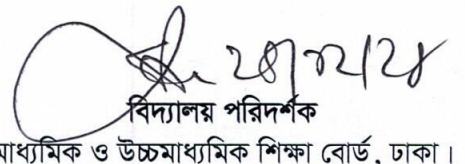 বিদ্যালয় পরিদর্শক
মাধ্যমিক ও উচ্চমাধ্যমিক শিক্ষা বোর্ড, ঢাকা।